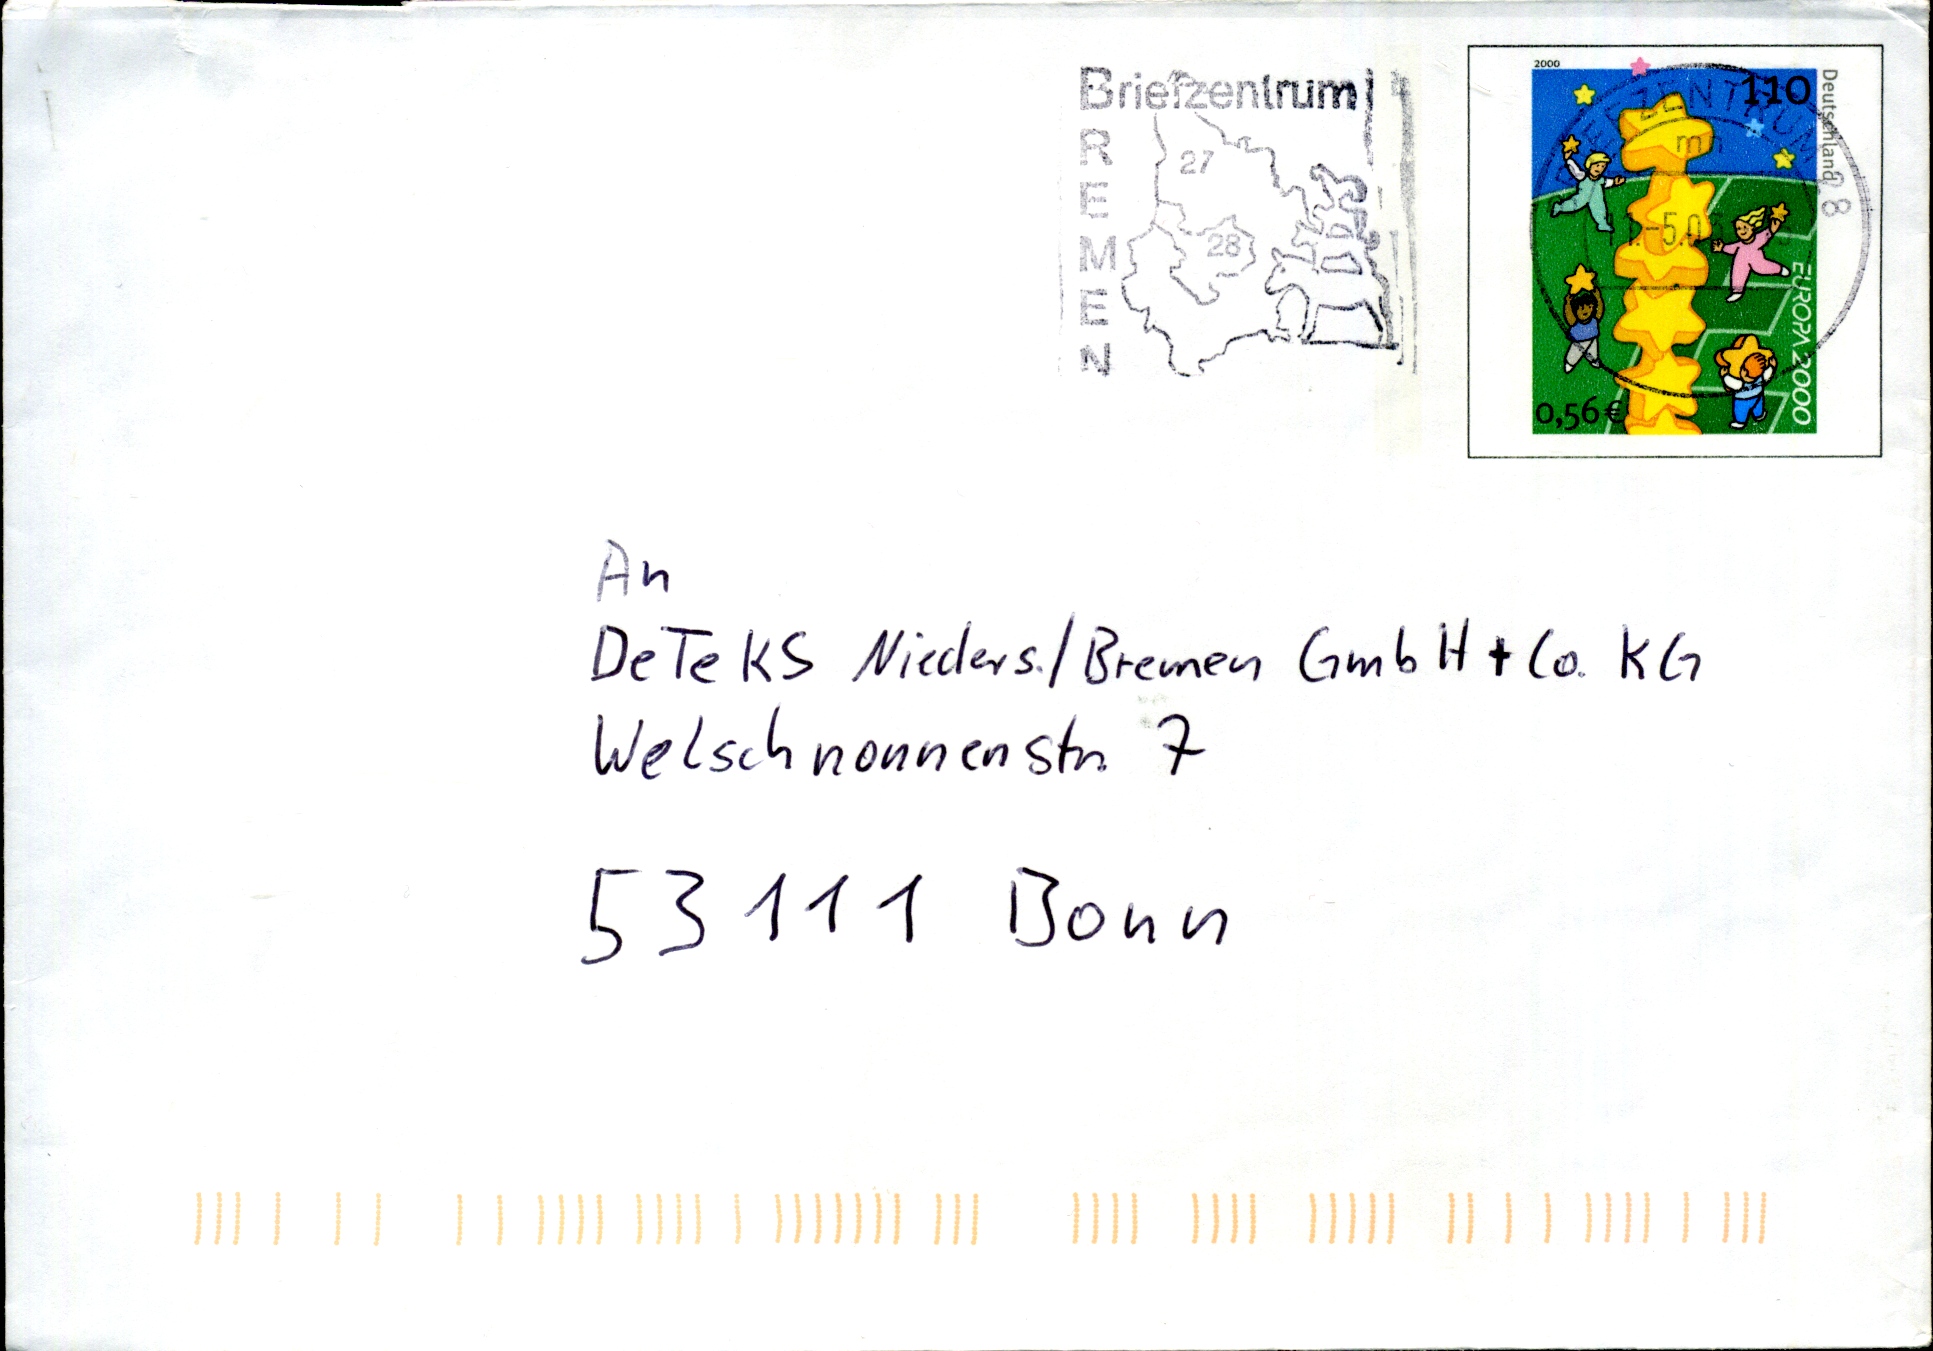 Briefzentrum
BREMEN
27
28
2000
110
Deutschland
EUROPA 2000
0,56 €
BRIEFZENTRUM 28
mn
An
DeTeKS Nieders./Bremen GmbH + Co. KG
Welschnonnenstr. 7
53111 Bonn